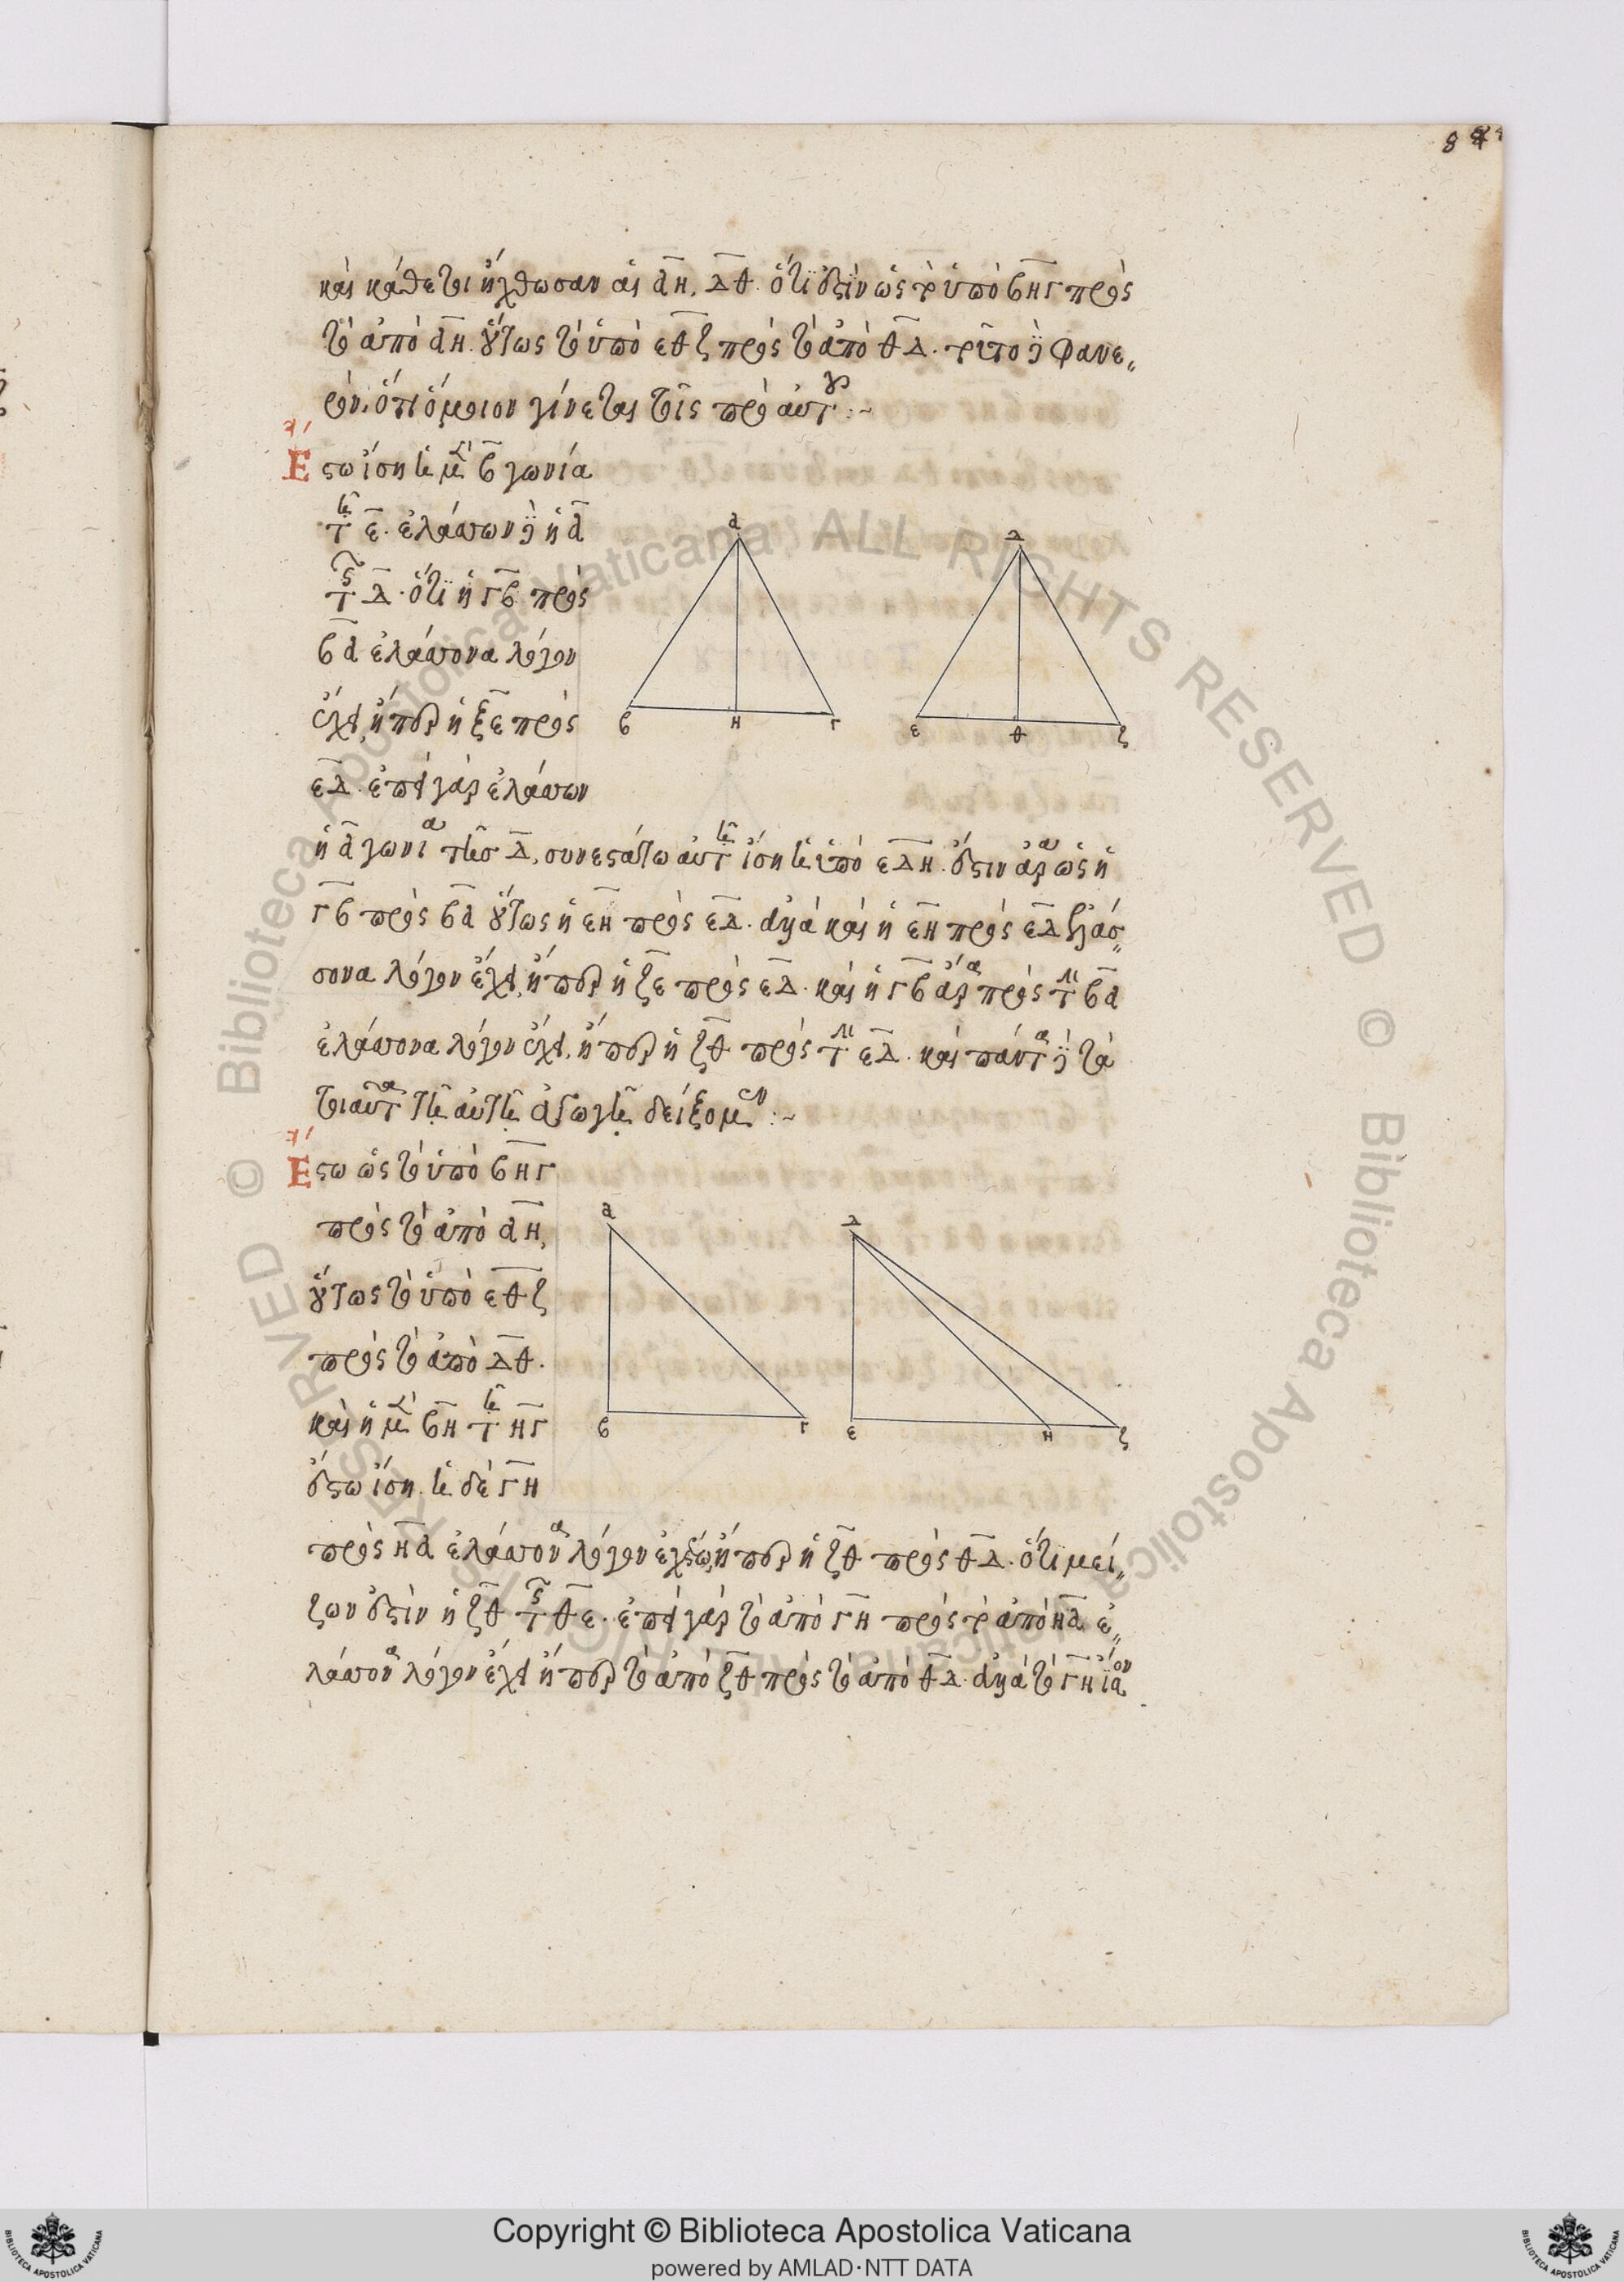 84
καὶ κάθετοι ἤχθωσαν αἱ ΑΗ, ΔΘ. ὅτι ἐστὶν ὡς τὸ ὑπὸ ΒΗΓ πρὸς
τὸ ἀπὸ ΑΗ. οὕτως τὸ ὑπὸ ΕΘΖ πρὸς τὸ ἀπὸ ΘΔ. τοῦτο δὲ φανε„
ρὸν, ὅτι ὅμοιον γίνεται τοῖς πρὸ αὐτοῦ :~
Ἔστω ἴση ἡ μὲν Β γωνία
τῇ Ε. ἐλάττων δὲ ἡ Α
τῆς Δ. ὅτι ἡ ΓΒ πρὸς
ΒΑ ἐλάττονα λόγον
ἔχει, ἤπερ ἡ ΖΕ πρὸς
ΕΔ. ἐπεὶ γὰρ ἐλάττων
ἡ Α γωνία τῆς Δ, συνεστάτω αὐτῇ ἴση ἡ ὑπὸ ΕΔΗ. ἔστιν ἄρα ὡς ἡ
ΓΒ πρὸς ΒΑ οὕτως ἡ ΕΗ πρὸς ΕΔ. ἀλλὰ καὶ ἡ ΕΗ πρὸς ΕΔ ἐλάσ„
σονα λόγον ἔχει, ἤπερ ἡ ΖΕ πρὸς ΕΔ. καὶ ἡ ΓΒ ἄρα πρὸς τὴν ΒΑ
ἐλάττονα λόγον ἔχει, ἤπερ ἡ ΖΘ πρὸς τὴν ΕΔ. καὶ πάντα δὲ τὰ
τοιαῦτα τῇ αὐτῇ ἀγωγῇ δείξομεν :~
α Δ
β Η Γ ε θ ζ
Ἔστω ὡς τὸ ὑπὸ ΒΗΓ
πρὸς τὸ ἀπὸ ΑΗ,
οὕτως τὸ ὑπὸ ΕΘΖ
πρὸς τὸ ἀπὸ ΔΘ.
καὶ ἡ μὲν ΒΗ τῇ ΗΓ
ἔστω ἴση. ἡ δὲ ΓΗ
πρὸς ΗΑ ἐλάττονα λόγον ἐχέτω, ἤπερ ἡ ΖΘ πρὸς ΘΔ. ὅτι μεί„
ζων ἐστὶν ἡ ΖΘ τῆς ΘΕ. ἐπεὶ γὰρ τὸ ἀπὸ ΓΗ πρὸς τὸ ἀπὸ ΗΑ ἐ„
λάττονα λόγον ἔχει ἤπερ τὸ ἀπὸ ΖΘ πρὸς τὸ ἀπὸ ΘΔ. ἀλλὰ τὸ ΓΗ ἴσον
α Δ
β Γ ε Η ζ
© Biblioteca Apostolica Vaticana ALL RIGHTS RESERVED
Copyright © Biblioteca Apostolica Vaticana
powered by AMLAD·NTT DATA